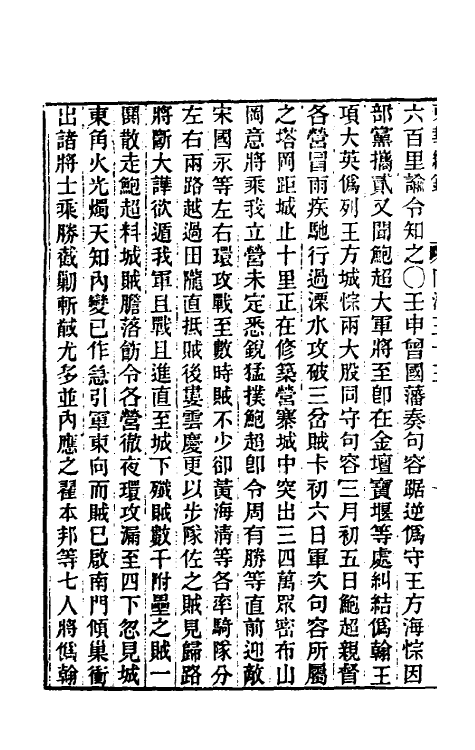 六百里諭令知之〇壬申曾國藩奏句容踞逆僞守王方海悰因
部黨攜貳又聞鮑超大軍將至卽在金壇寶堰等處糾結僞翰王
項大英僞列王方城悰兩大股同守句容三月初五日鮑超親督
各營冒雨疾馳行過溧水攻破三岔賊卡初六日軍次句容所屬
之塔岡距城止十里正在修築營寨城中突出三四萬眾密布山
岡意將乘我立營未定悉銳猛撲鮑超卽令周有勝等直前迎敵
宋國永等左右環攻戰至數時賊不少卻黃海淸等各率騎隊分
左右兩路越過田隴直抵賊後婁雲慶更以步隊佐之賊見歸路
將斷大譁欲遁我軍且戰且進直至城下殲賊數千附壘之賊一
鬨散走鮑超料城賊膽落飭令各營徹夜環攻漏至四下忽見城
東角火光燭天知內變已作急引軍東向而賊已啟南門傾巢衝
出諸將士乘勝截勦斬馘尤多並內應之翟本邦等七人將僞翰